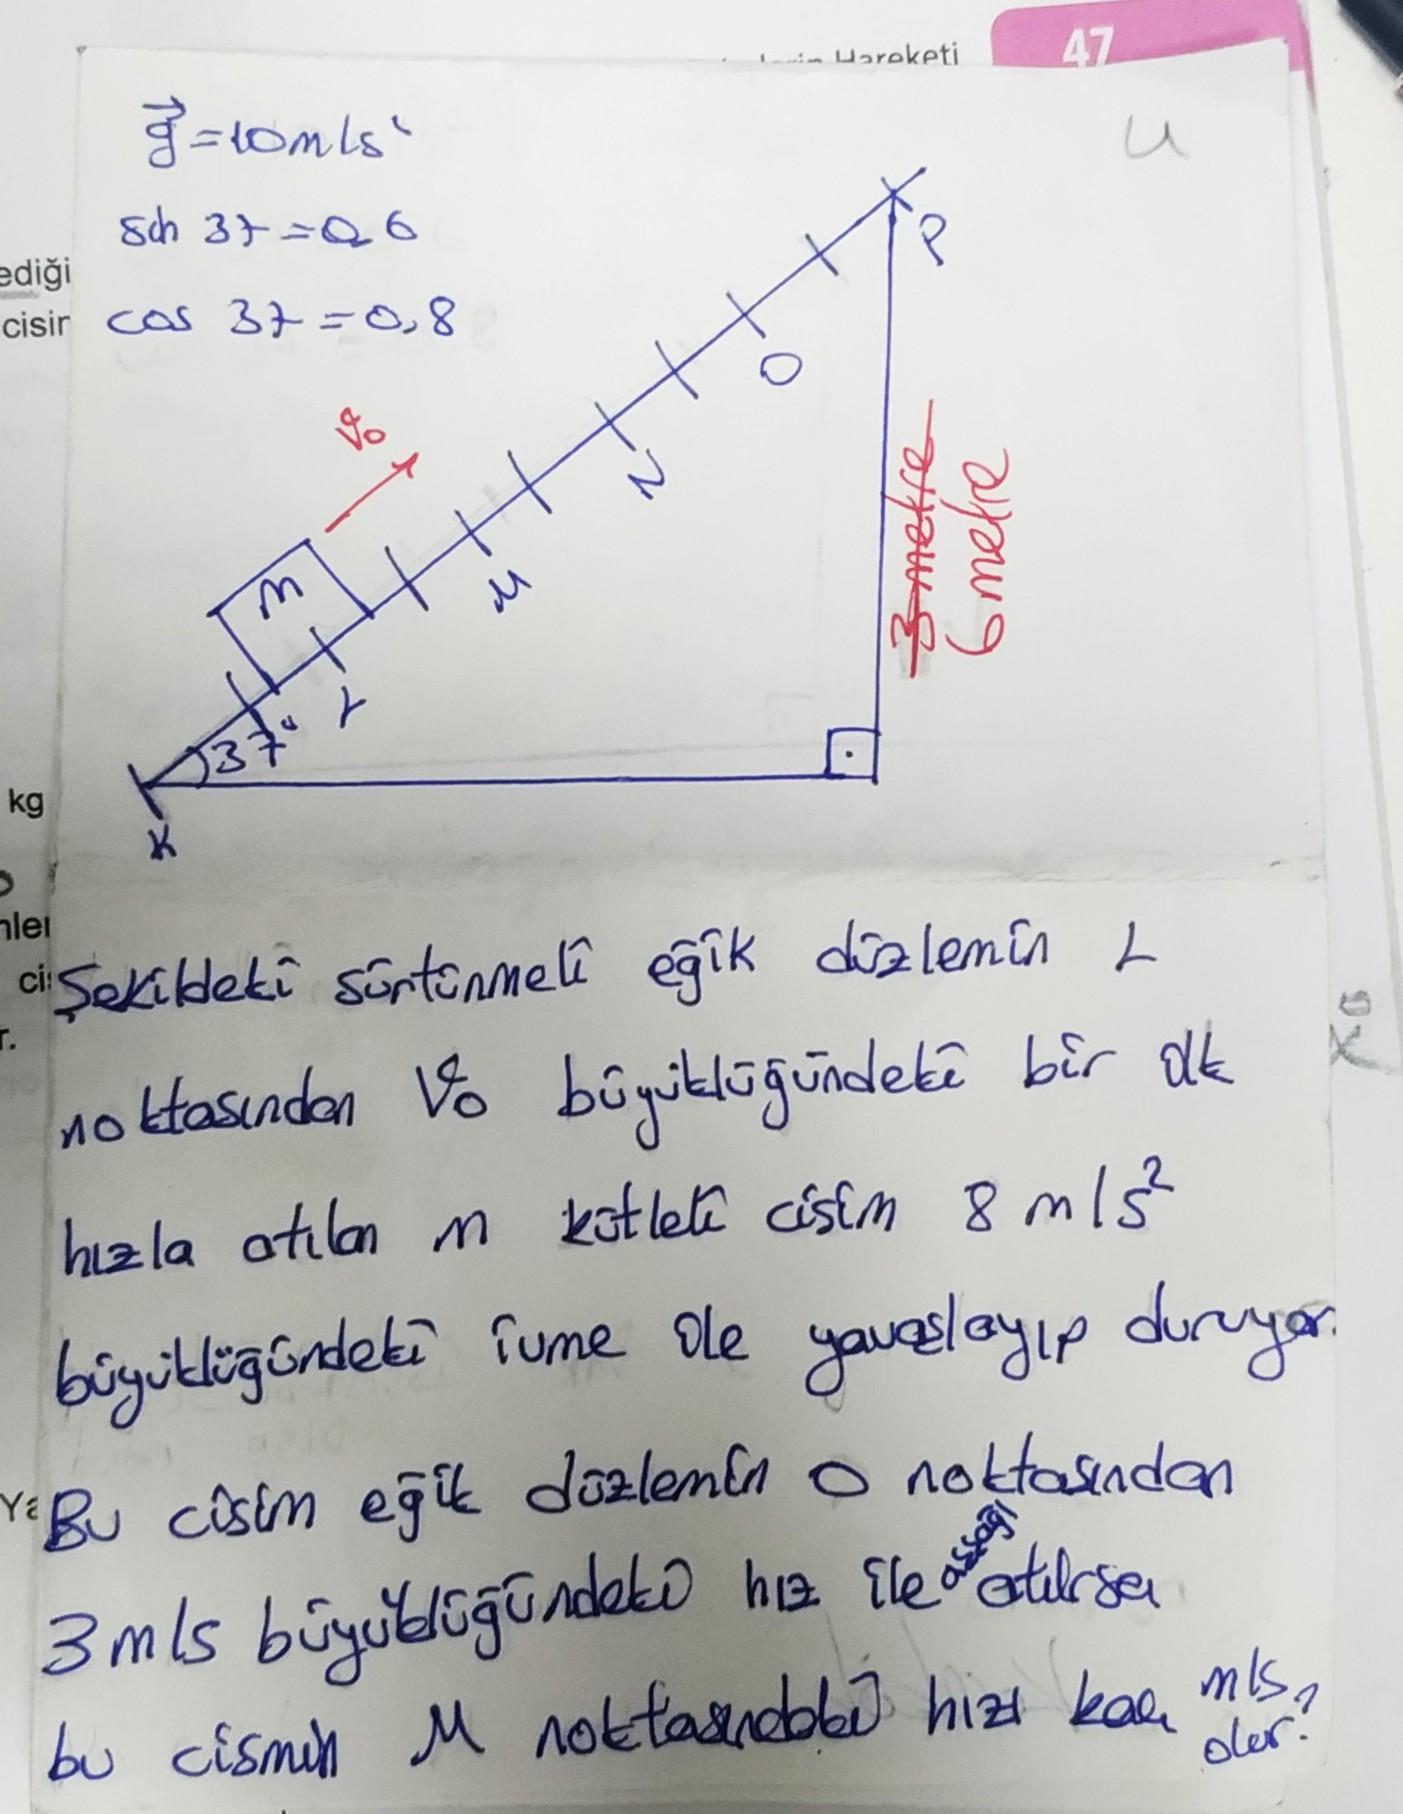 Hareketi
47
g=10m/s²
sin 37=0,6
cos 37=0,8
U
P
O
N
M
L
K
V₀
m
37°
3 metre
6 metre
ediği
cisin
kg
Şekildeki sürtünmeli eğik düzlemin L
noktasından V₀ büyüklüğündeki bir ilk
hızla atılan m kütleli cisim 8 m/s²
büyüklüğündeki ivme ile yavaşlayıp duruyor.
Bu cisim eğik düzlemin O noktasından
3 m/s büyüklüğündeki hız ile aşşağı atılırsa
bu cismin M noktasındaki hızı kaç m/s olur?